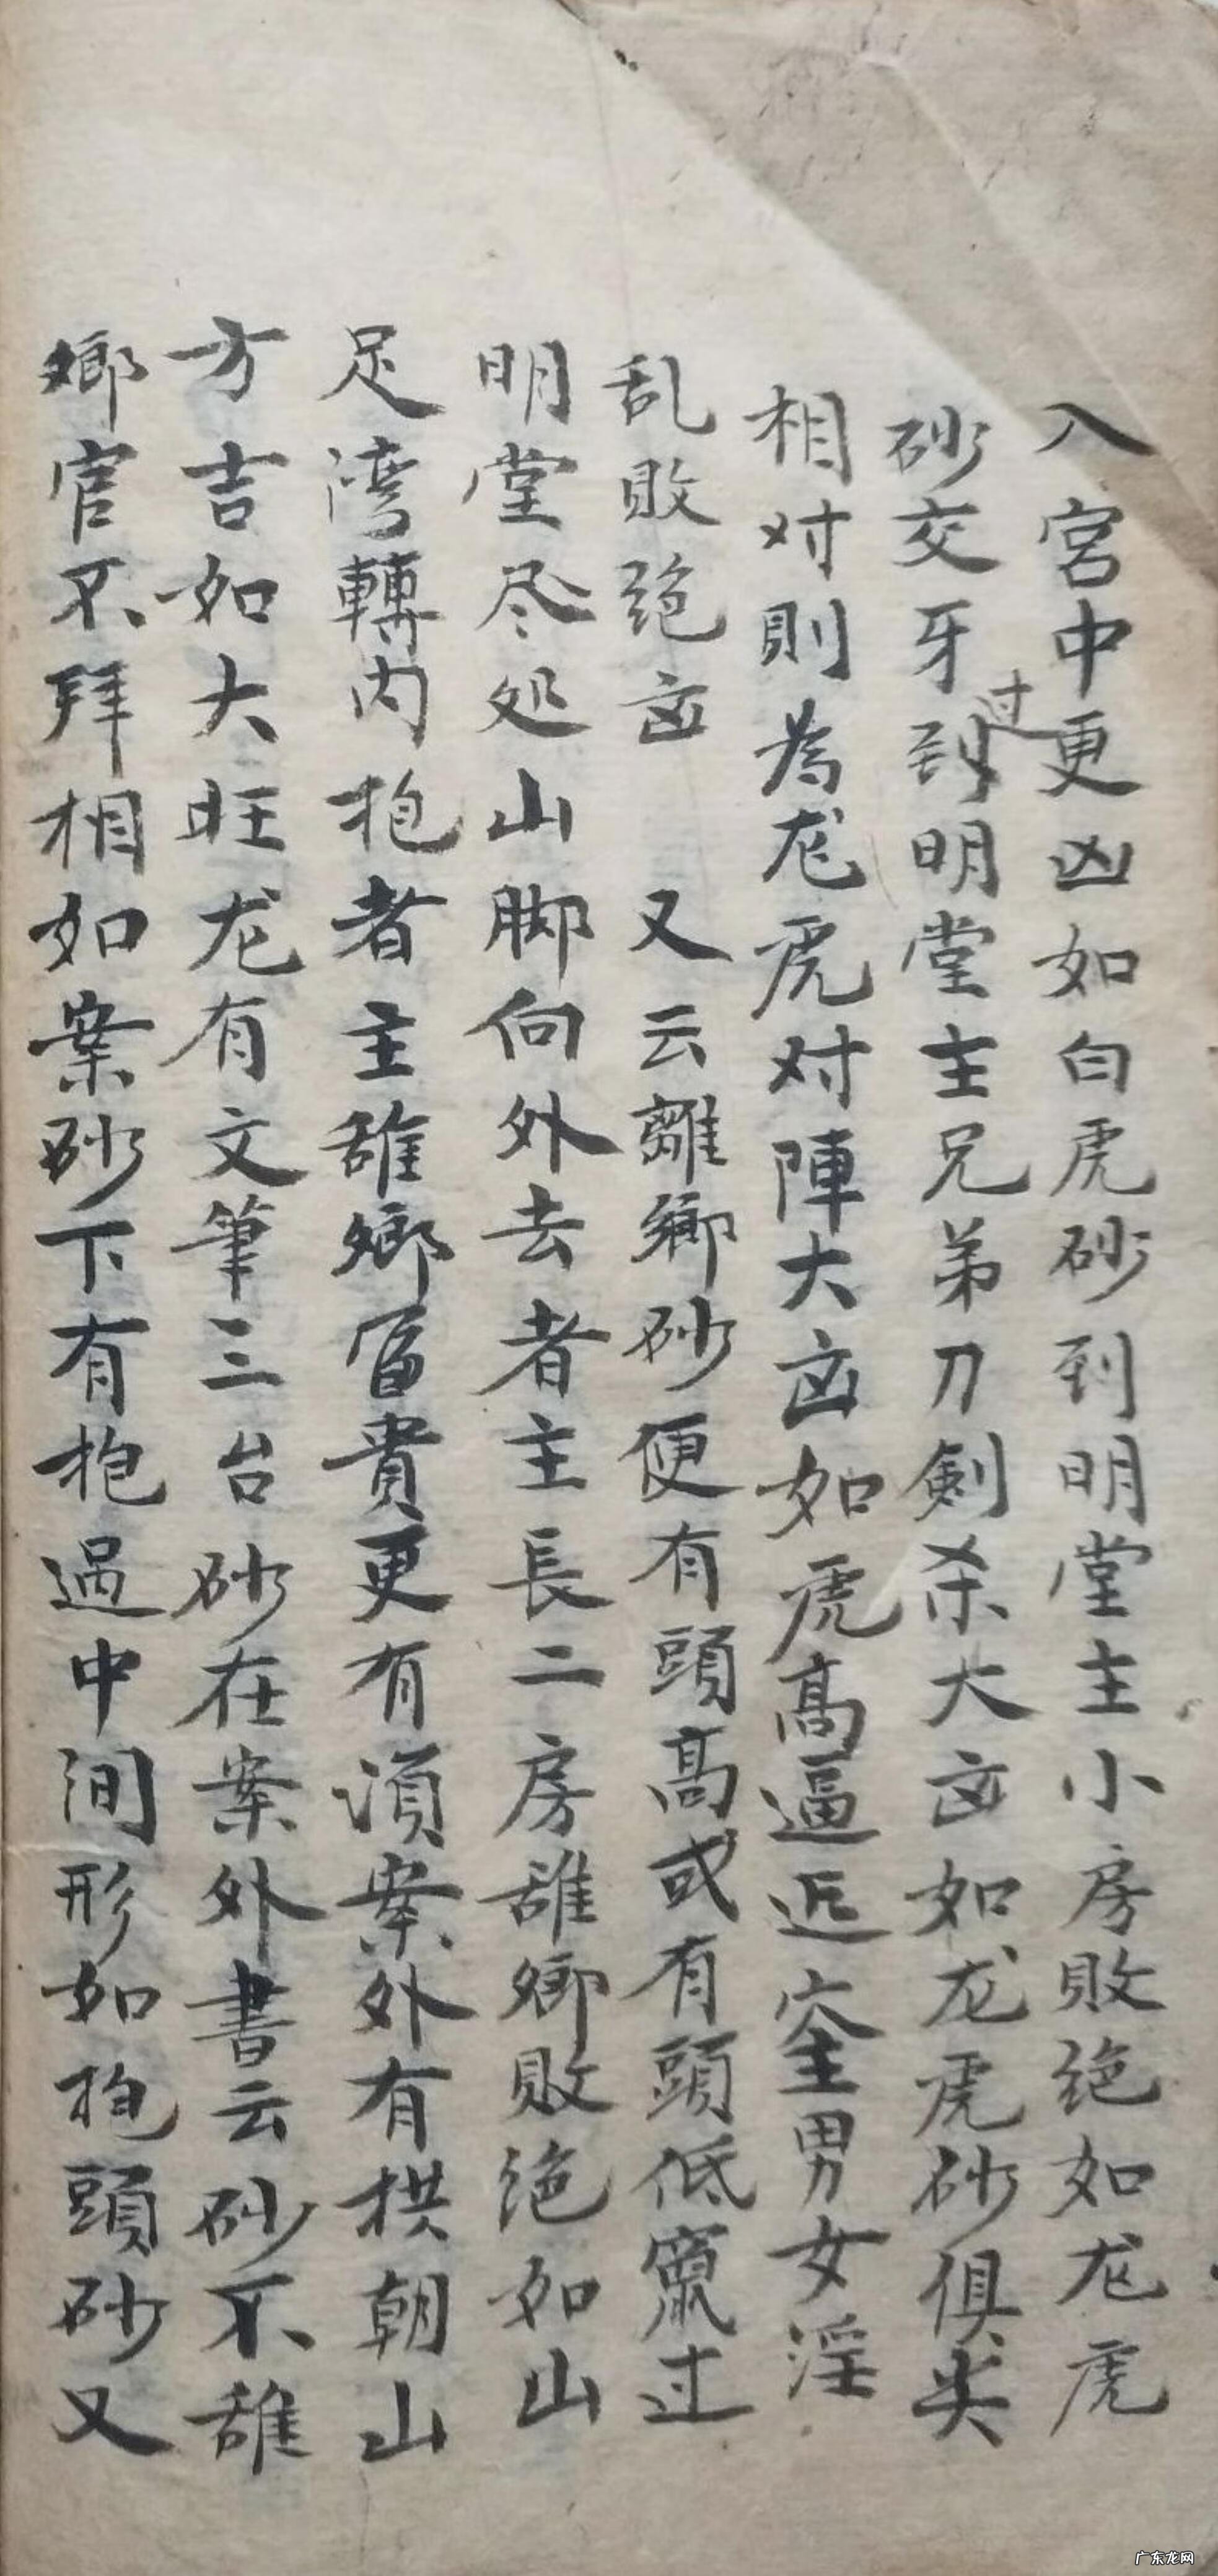 入宮中更凶如白虎砂到明堂主小房敗绝如龙虎
砂交牙到过明堂主兄弟刀劍杀大凶如龙虎砂俱尖
相对則為龙虎对陣大凶如虎高逼近穴主男女淫
乱敗绝凶 又云離鄉砂便有頭高或有頭低竄过
明堂尽处山脚向外去者主長二房離鄉敗绝如山
足湾轉内抱者主離鄉富貴更有須案外有拱朝山
方吉如大旺龙有文筆三台砂在案外書云砂不離
鄉官不拜相如案砂下有抱過中间形如抱頭砂又
广东龙网